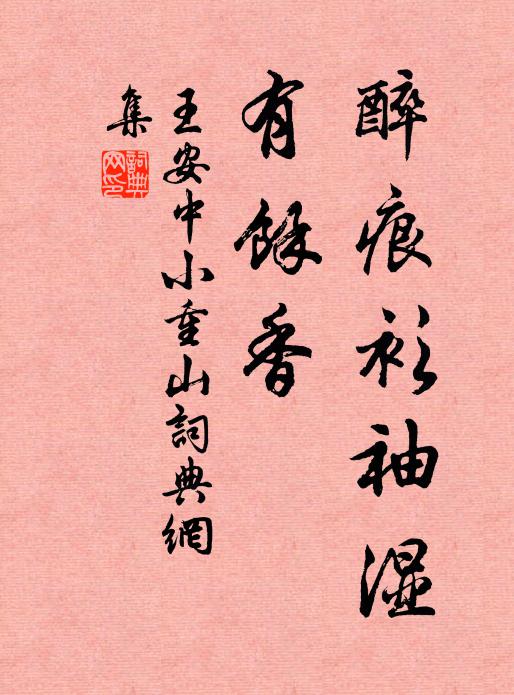 醉痕衫袖濕
有餘香
王安中小重山詞典網
集
詞典網印